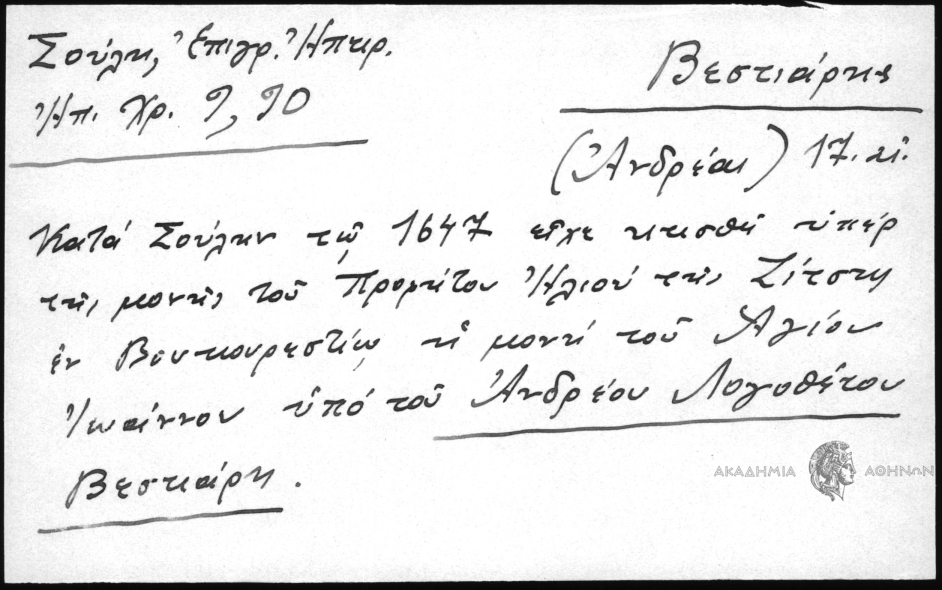 Σούλη, Ἐπιγρ. Ἠπειρ.
Ἠπ. Χρ. 9, 90
Βεστιάρης
(Ἀνδρέας) 17. αἰ.
Κατά Σούλην τῷ 1647 εἶχε κτισθῆ ὑπέρ
τῆς μονῆς τοῦ Προφήτου Ἠλιού τῆς Ζίτσης
ἐν Βουκουρεστίῳ ἡ μονή τοῦ Ἁγίου
Ἰωάννου ὑπό τοῦ Ἀνδρέου Λογοθέτου
Βεστιάρη.
ΑΚΑΔΗΜΙΑ ΑΘΗΝΩΝ